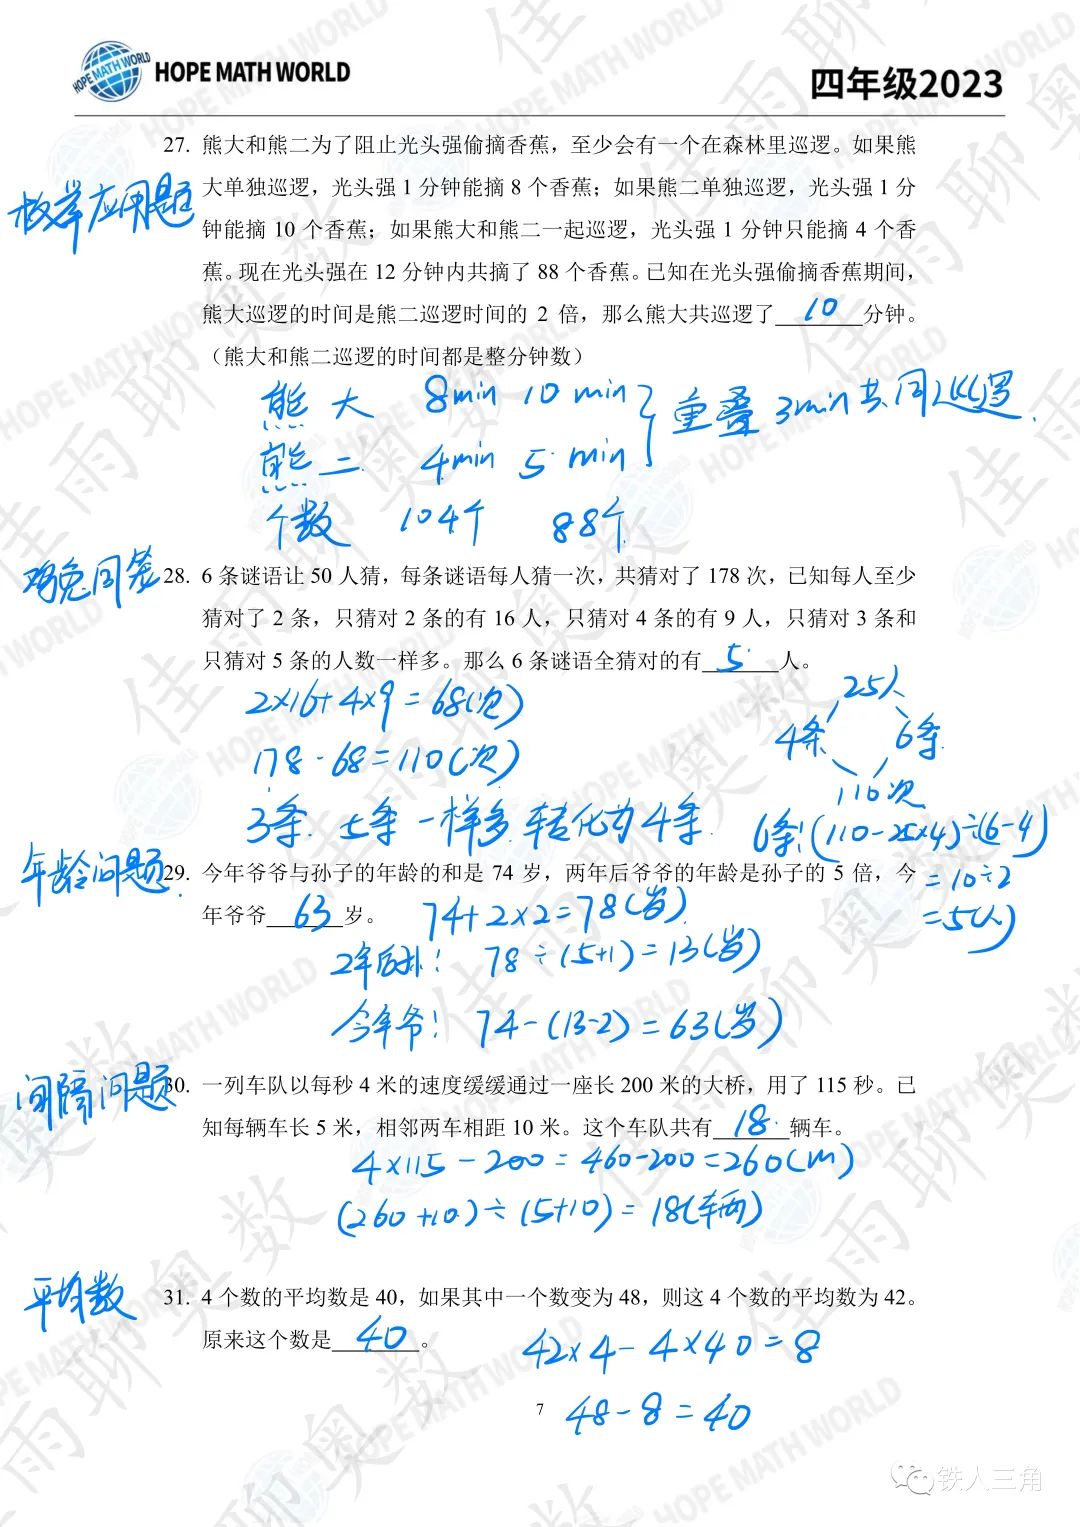 HOPE MATH WORLD
四年级2023
27. 熊大和熊二为了阻止光头强偷摘香蕉，至少会有一个在森林里巡逻。如果熊
大单独巡逻，光头强 1 分钟能摘 8 个香蕉；如果熊二单独巡逻，光头强 1 分
枚举应用题
钟能摘 10 个香蕉；如果熊大和熊二一起巡逻，光头强 1 分钟只能摘 4 个香
蕉。现在光头强在 12 分钟内共摘了 88 个香蕉。已知在光头强偷摘香蕉期间，
熊大巡逻的时间是熊二巡逻时间的 2 倍，那么熊大共巡逻了 10 分钟。
（熊大和熊二巡逻的时间都是整分钟数）
熊大 8min 10 min
重叠 3min共同巡逻.
熊二 4min 5 min
个数 104个 88个
鸡兔同笼
28. 6 条谜语让 50 人猜，每条谜语每人猜一次，共猜对了 178 次，已知每人至少
猜对了 2 条，只猜对 2 条的有 16 人，只猜对 4 条的有 9 人，只猜对 3 条和
只猜对 5 条的人数一样多。那么 6 条谜语全猜对的有 5 人。
2×16+4×9=68(次)
25人
4条 6条
178-68=110(次)
110次
3条. 5条 一样多. 转化为4条.
6条:(110-25×4)÷(6-4)
=10÷2
=5(人)
年龄问题.
29. 今年爷爷与孙子的年龄的和是 74 岁，两年后爷爷的年龄是孙子的 5 倍，今
年爷爷 63 岁。
74+2×2=78(岁)
2年后孙: 78÷(5+1)=13(岁)
今年爷: 74-(13-2)=63(岁)
间隔问题
30. 一列车队以每秒 4 米的速度缓缓通过一座长 200 米的大桥，用了 115 秒。已
知每辆车长 5 米，相邻两车相距 10 米。这个车队共有 18 辆车。
4×115-200=460-200=260(m)
(260+10)÷(5+10)=18(辆)
平均数
31. 4 个数的平均数是 40，如果其中一个数变为 48，则这 4 个数的平均数为 42。
原来这个数是 40 。
42×4-4×40=8
48-8=40
7
铁人三角
佳雨聊奥数
HOPE MATH WORLD